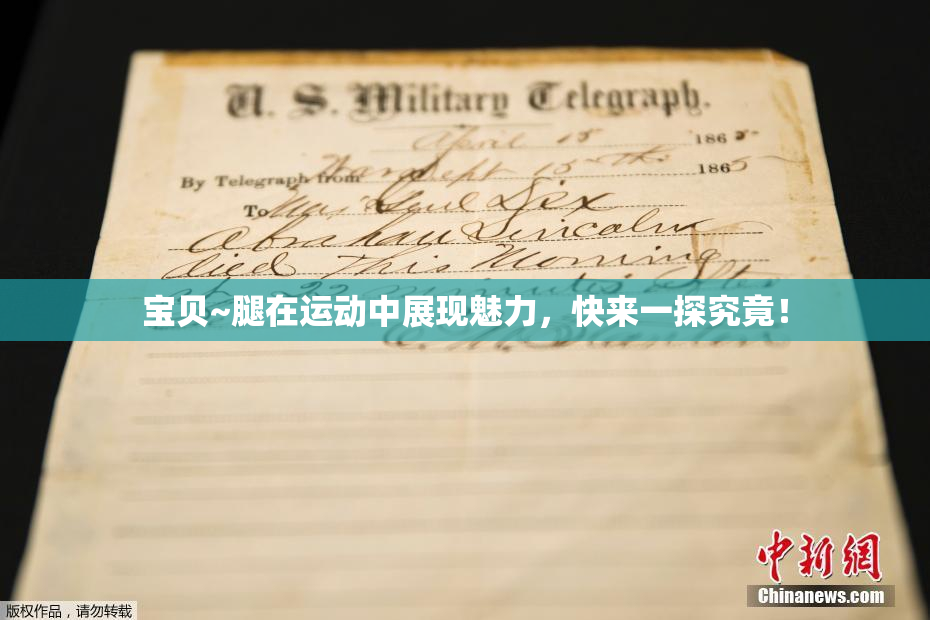 U. S. Military Telegraph.
April 15 1865
By Telegraph from War Dept 15th 1865
To Maj Genl Dix
Abraham Lincoln
died This Morning
22 minutes after
宝贝~腿在运动中展现魅力，快来一探究竟！
E. M. Stanton
中新网
Chinanews.com
版权作品，请勿转载